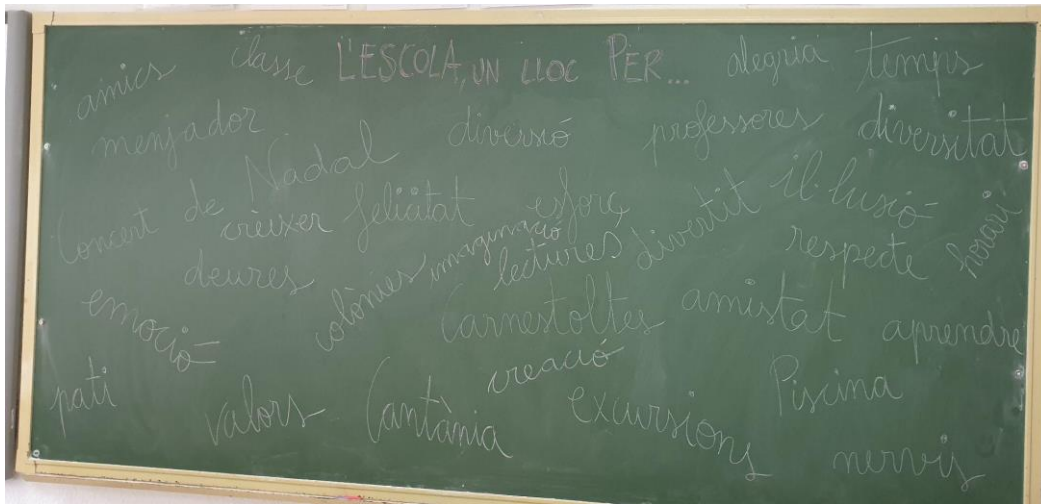 L'ESCOLA, UN LLOC PER...
amics
classe
alegria
temps
menjador
diversió
professores
diversitat
Concert de Nadal
créixer
felicitat
esforç
divertit
il·lusió
deures
colònies
imaginació
lectures
respecte
horari
emoció
Carnestoltes
amistat
aprendre
pati
valors
Cantània
creació
excursions
Piscina
nervis